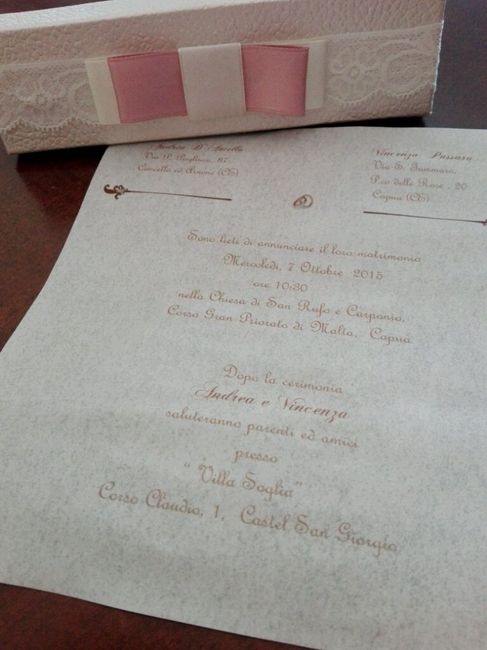 Andrea D'
Via P. Pagliuca, 87
Cancello ed Arnone (CE)
Vincenza
Via S. Jammaro,
P.co delle Rose, 20
Capua (CE)
Sono lieti di annunciare il loro matrimonio
Mercoledì, 7 Ottobre 2015
ore 10:30
nella Chiesa di San Rufo e Carponio,
Corso Gran Priorato di Malta, Capua
Dopo la cerimonia
Andrea e Vincenza
saluteranno parenti ed amici
presso
" Villa Soglia"
Corso Claudio, 1, Castel San Giorgio